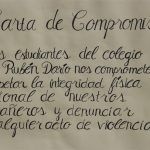 Carta de Compromis
s estudiantes del colegio
Rubén Darío nos compromete
petar la integridad física
ional de nuestros
añeros y denunciar
alquier acto de violencia